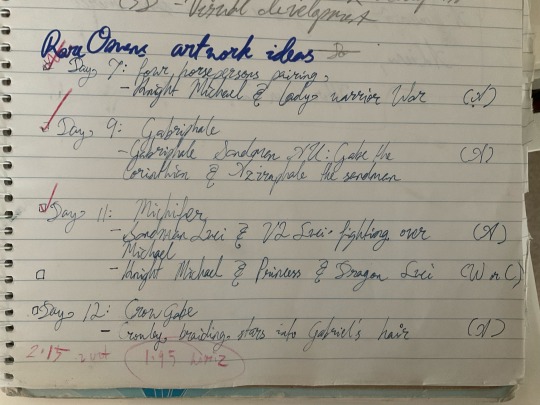 - Visual development
Rare Omens artwork ideas
Day 7: four horsepersons pairing,
- Knight Michael & Lady warrior War (A)
Day 9: Gabriphale
- Gabriphale Sandman AU: Gabe the
Corinthian & Aziraphale the sandman
Day 11: Michifer
- Sandman Luci & V2 Luci fighting over (A)
Michael
- Knight Michael & Princess & Dragon Luci (W or C)
Day 12: Crow Gabe
- Crowley braiding stars into Gabriel's hair (A)
2.15
1.95